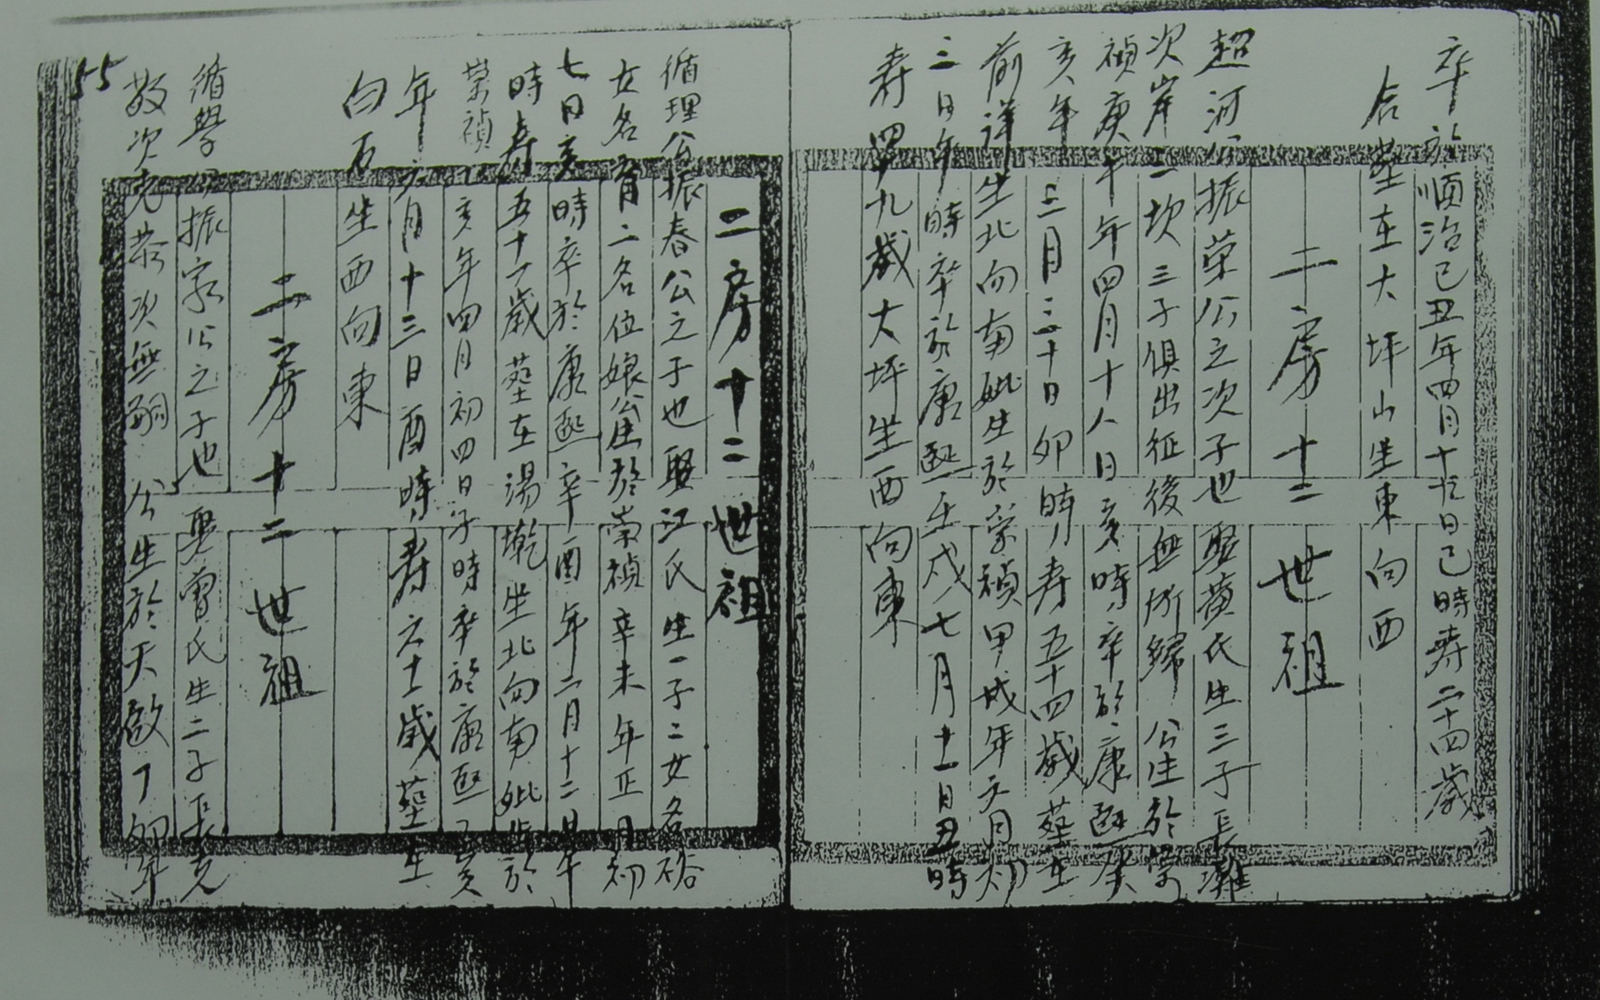 卒於順治己丑年四月十九日巳時壽二十四歲
合塟在大坪山坐東向西
二房十二世祖
超河公振荣公之次子也娶黄氏生三子長灘
次岸二坎三子俱出征後無所歸 公生於崇
禎庚午年四月十八日亥時卒於康熙癸
亥年三月二十日卯時壽五十四歲塟在
前洋坐北向南妣生於崇禎甲戌年六月初
三日午時卒於康熙壬戌七月十一日丑時
寿四十九歲大坪坐西向東
二房十二世祖
循理公振春公之子也娶江氏生一子二女名硌
女名育二名位娘翁生於崇禎辛未年正月初
七日亥時卒於康熙辛酉年二月十二日午
時壽五十一歲塟在湯墘坐北向南妣生於
崇禎乙亥年四月初四日子時卒於康熙乙亥
年六月十三日酉時寿六十一歲塟在
向石坐西向東
二房十二世祖
循學公振家公之子也娶曾氏生二子長克
敬次克恭次無嗣 公生於天啟丁卯年
55